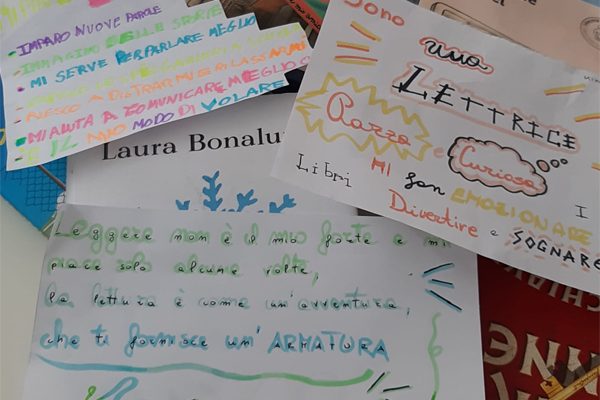 IMPARO NUOVE PAROLE
IMMAGINI DELLE STORIE
MI SERVE PER PARLARE MEGLIO
RIESCO A DISTRARMI E RILASSARMI
MI AIUTA A COMUNICARE MEGLIO
È IL MIO MODO DI VOLARE
Laura Bonalu
Sono
una
LETTRICE
Pazza
e
Curiosa
I
Libri MI fan EMOZIONARE
Divertire e SOGNARE
Leggere non è il mio forte e mi
piace solo alcune volte,
la lettura è come un'avventura,
che ti fornisce un'ARMATURA
CHIAR
NNE